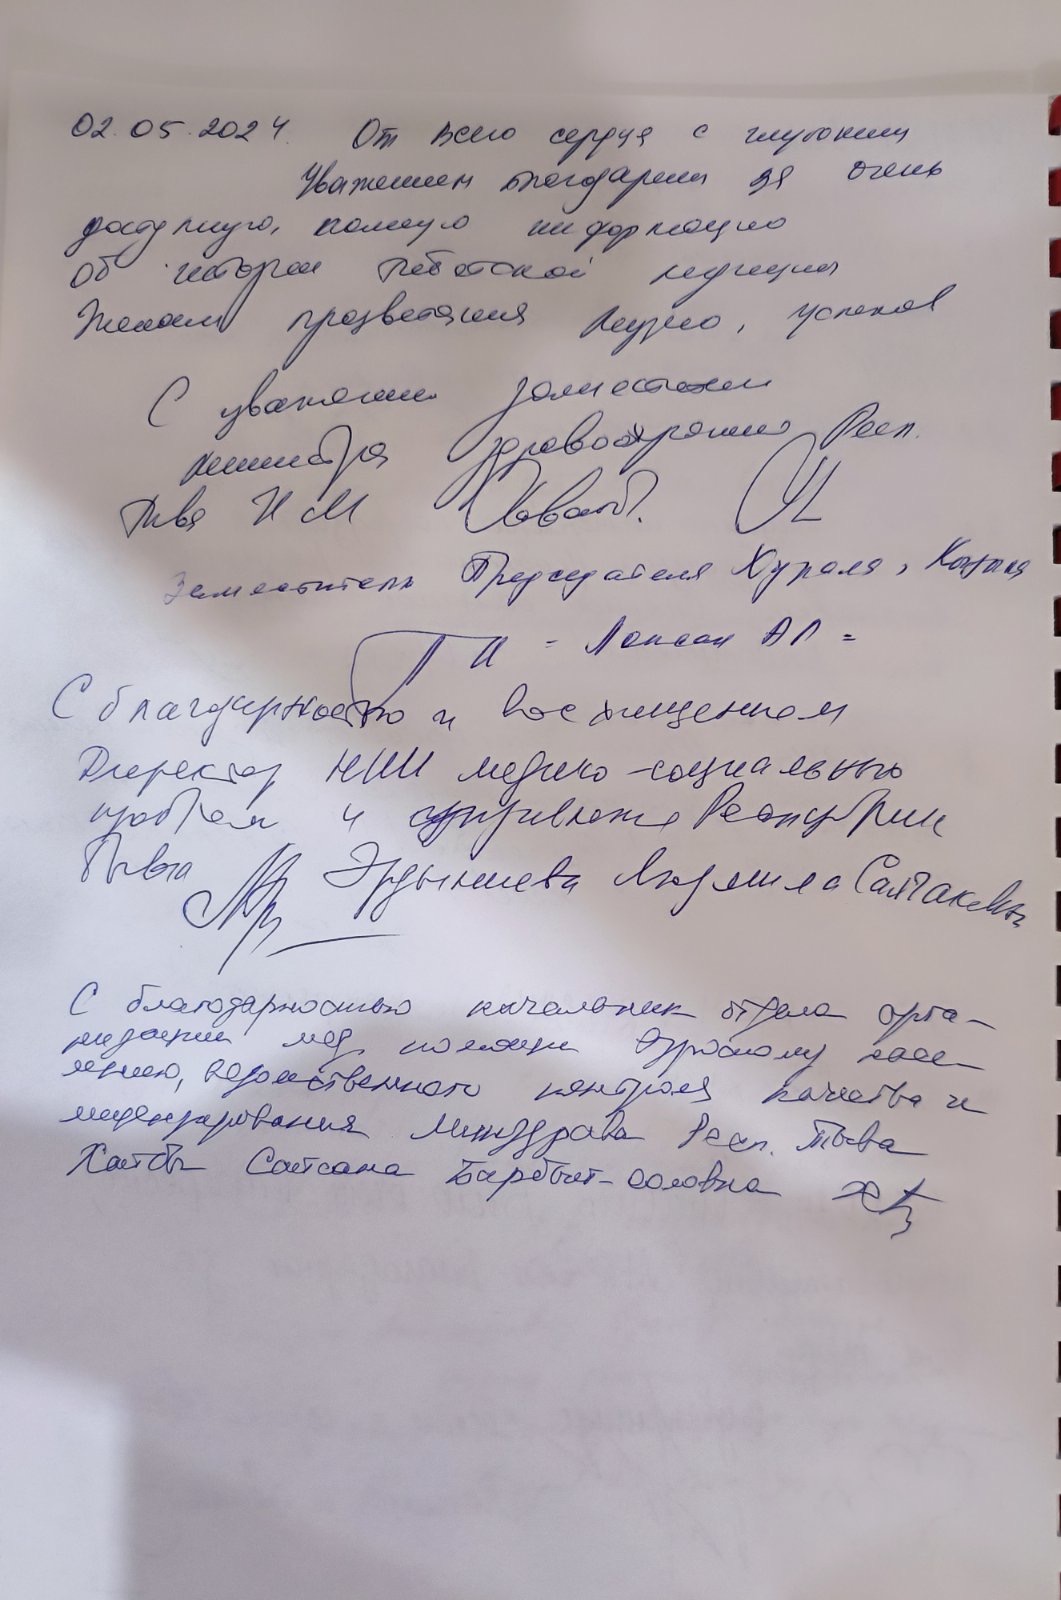 02.05.2024. От всего сердца с глубоким
уважением благодарим за очень
доступную, полную информацию
об истории тибетской медицины
Желаем процветания музею, успехов
С уважением заместител
министра здравоохранения Респ.
Тыва И М
Заместитель Председателя Хурала г. Кызыла
= Лопсан АЛ =
С благодарностью и восхищением
Директор НИИ медико-социальных
проблем и управления Республики
Тыва Эрдыниева Людмила Салчаковна
С благодарностью начальник отдела орга-
низации мед помощи взрослому насе
лению, ведомственного контроля качества и
лицензирования Минздрава Респ. Тыва
Сайсана